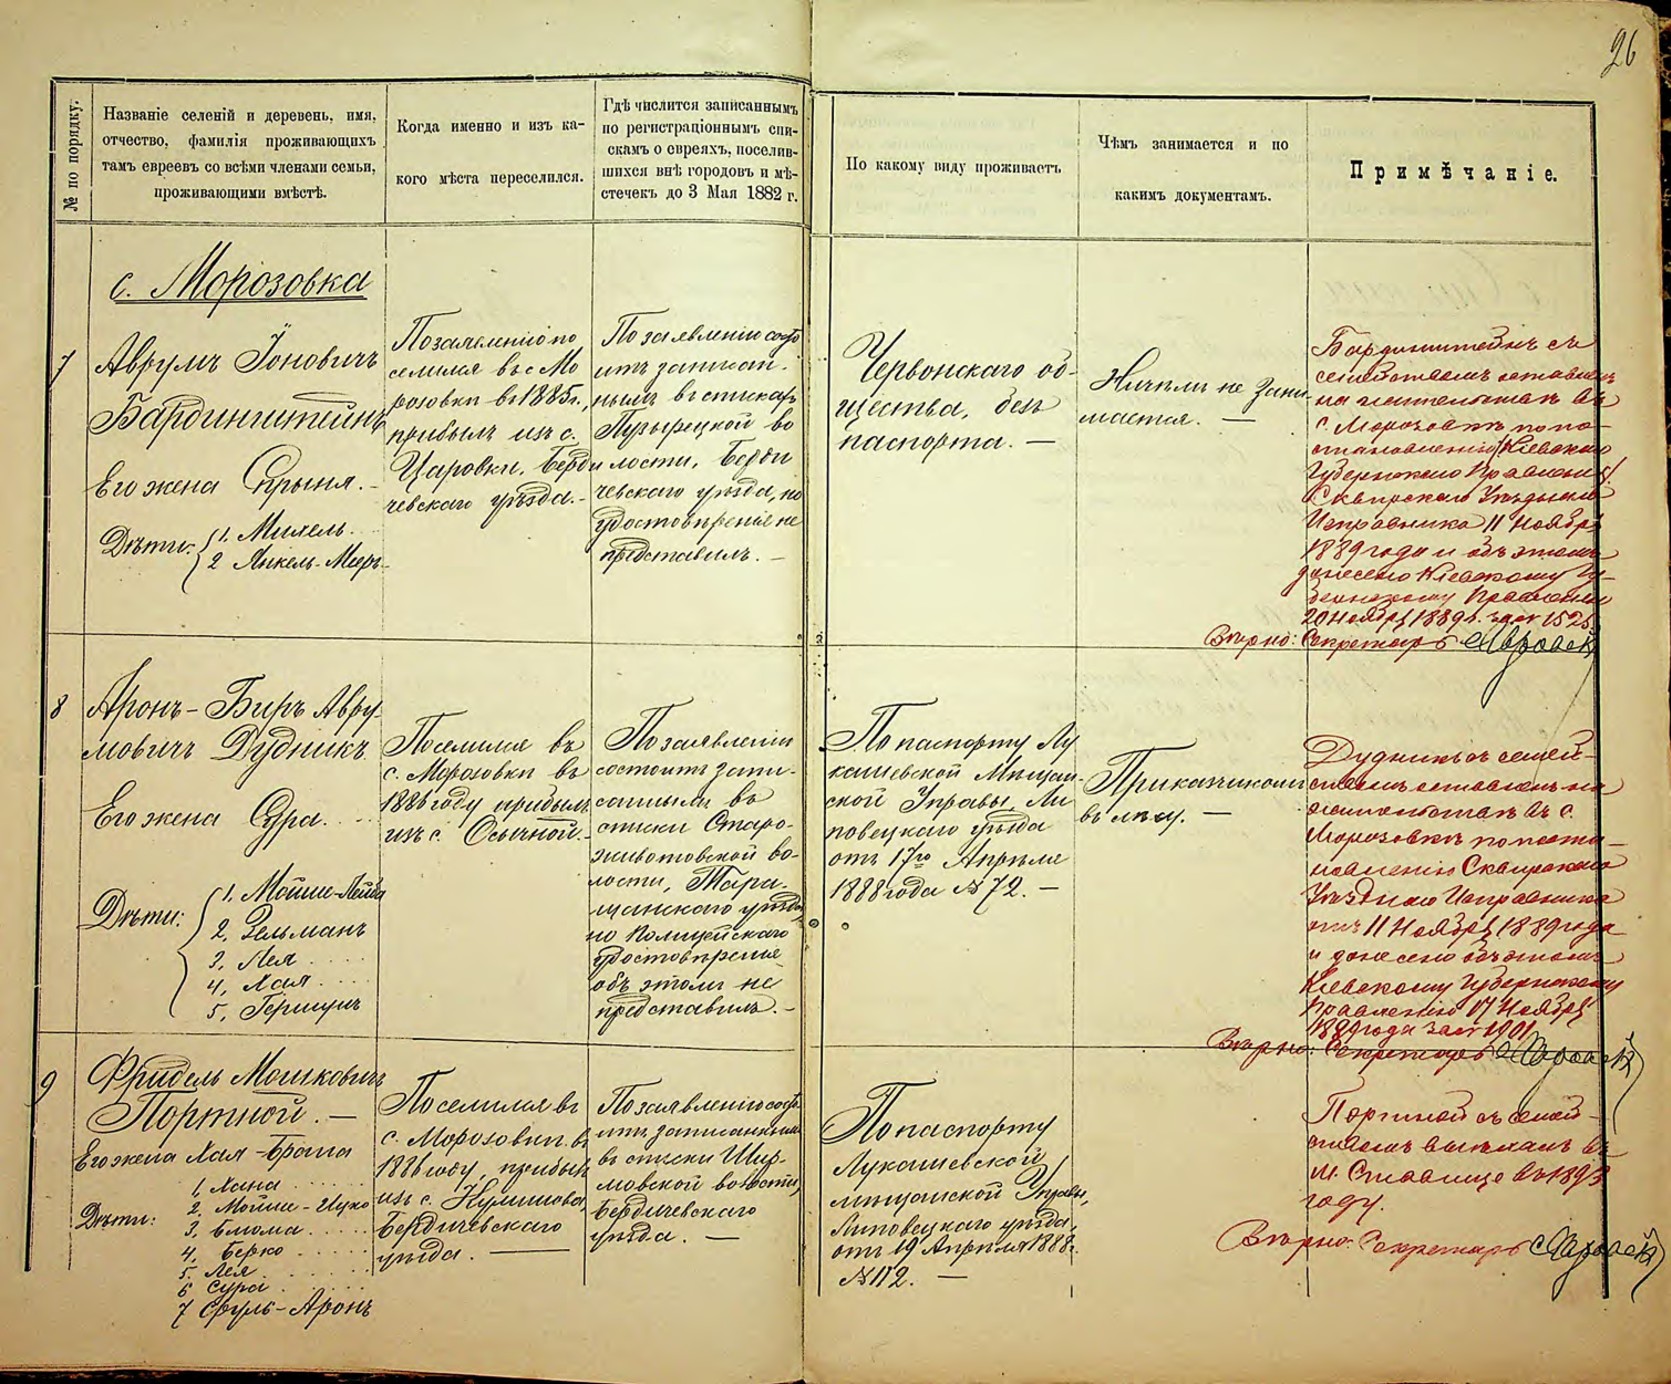 26
№ по порядку.
Названіе селеній и деревень, имя,
отчество, фамилія проживающихъ
тамъ евреевъ со всѣми членами семьи,
проживающими вмѣстѣ.
Когда именно и изъ ка-
кого мѣста переселился.
Гдѣ числится записаннымъ
по регистраціоннымъ спи-
скамъ о евреяхъ, поселив-
шихся внѣ городовъ и мѣ-
стечекъ до 3 Мая 1882 г.
По какому виду проживаетъ
Чѣмъ занимается и по
какимъ документамъ.
Примѣчаніе.
с. Морозовка
7
Аврумъ Іоновичъ
Бардинштейнъ
Его жена Срыня. -
Дѣти:
1. Михель.
2 Янкель-Мееръ -
По заявленію по
селился въ с Мо
розовки въ 1885 г.,
прибылъ изъ с.
Царовки, Берди
чевскаго уѣзда. -
По заявленію состо
итъ записан-
нымъ въ спискахъ
Пузырецкой во
лости, Берди
чевскаго уѣзда, но
удостовѣренія не
представилъ. -
Червонскаго об-
щества, безъ
паспорта. —
Ничѣмъ не зани
мается. —
Бардинштейнъ съ
семействомъ оставленъ
на жительствѣ въ
с. Морозовкѣ по по-
становленію Кіевскаго
Губернскаго Правленія
Сквирскаго Уѣзднаго
Исправника 11 Ноября
1889 года и объ этомъ
донесено Кіевскому Гу-
бернскому Правленію
20 Ноября 1889 г. за № 1525.
Вѣрно: Секретарь
8
Аронъ-Биръ Авру
мовичъ Дудникъ.
Его жена Сура.
Дѣти:
1. Мойше-Лейба
2, Зельманъ
3, Лея
4, Хая
5, Гершунъ
Поселился въ
с. Морозовки въ
1886 году прибылъ
изъ с. Осычной. -
По заявленію
состоитъ запи-
саннымъ въ
списки Старо-
животовской во-
лости, Тара-
щанскаго уѣзда,
но Полицейскаго
удостовѣренія
объ этомъ не
представилъ. -
По паспорту Лу
кашевской Мѣщан-
ской Управы, Ли
повецкаго уѣзда
отъ 17го Апрѣля
1888 года № 72. —
Приказчикомъ
въ лѣсу. —
Дудникъ съ семей-
ствомъ оставленъ на
жительствѣ въ с.
Морозовкѣ по поста-
новленію Сквирскаго
Уѣзднаго Исправника
отъ 11 Ноября 1889 года
и донесено объ этомъ
Кіевскому Губернскому
Правленію 17 Ноября
1889 года за № 1901
Вѣрно: Секретарь
9
Фридель Мошковичъ
Портной. —
Его жена Хая-Брана
Дѣти:
1, Хана
2. Мойше-Ицко
3, Блюма
4, Берко
5. Лея
6 Сура
7 Сруль-Аронъ
Поселился въ
с. Морозовки въ
1886 году, прибылъ
изъ с.
Бердичевскаго
уѣзда. —
По заявленію состо
итъ записаннымъ
въ списки Шир-
мовской волости,
Бердичевскаго
уѣзда. —
По паспорту
Лукашевской
мѣщанской Управы,
Липовецкаго уѣзда,
отъ 19 Апрѣля 1888 г.
№ 112. —
Портной съ семей-
ствомъ выѣхалъ въ
м. Ставище въ 1893
году.
Вѣрно: Секретарь